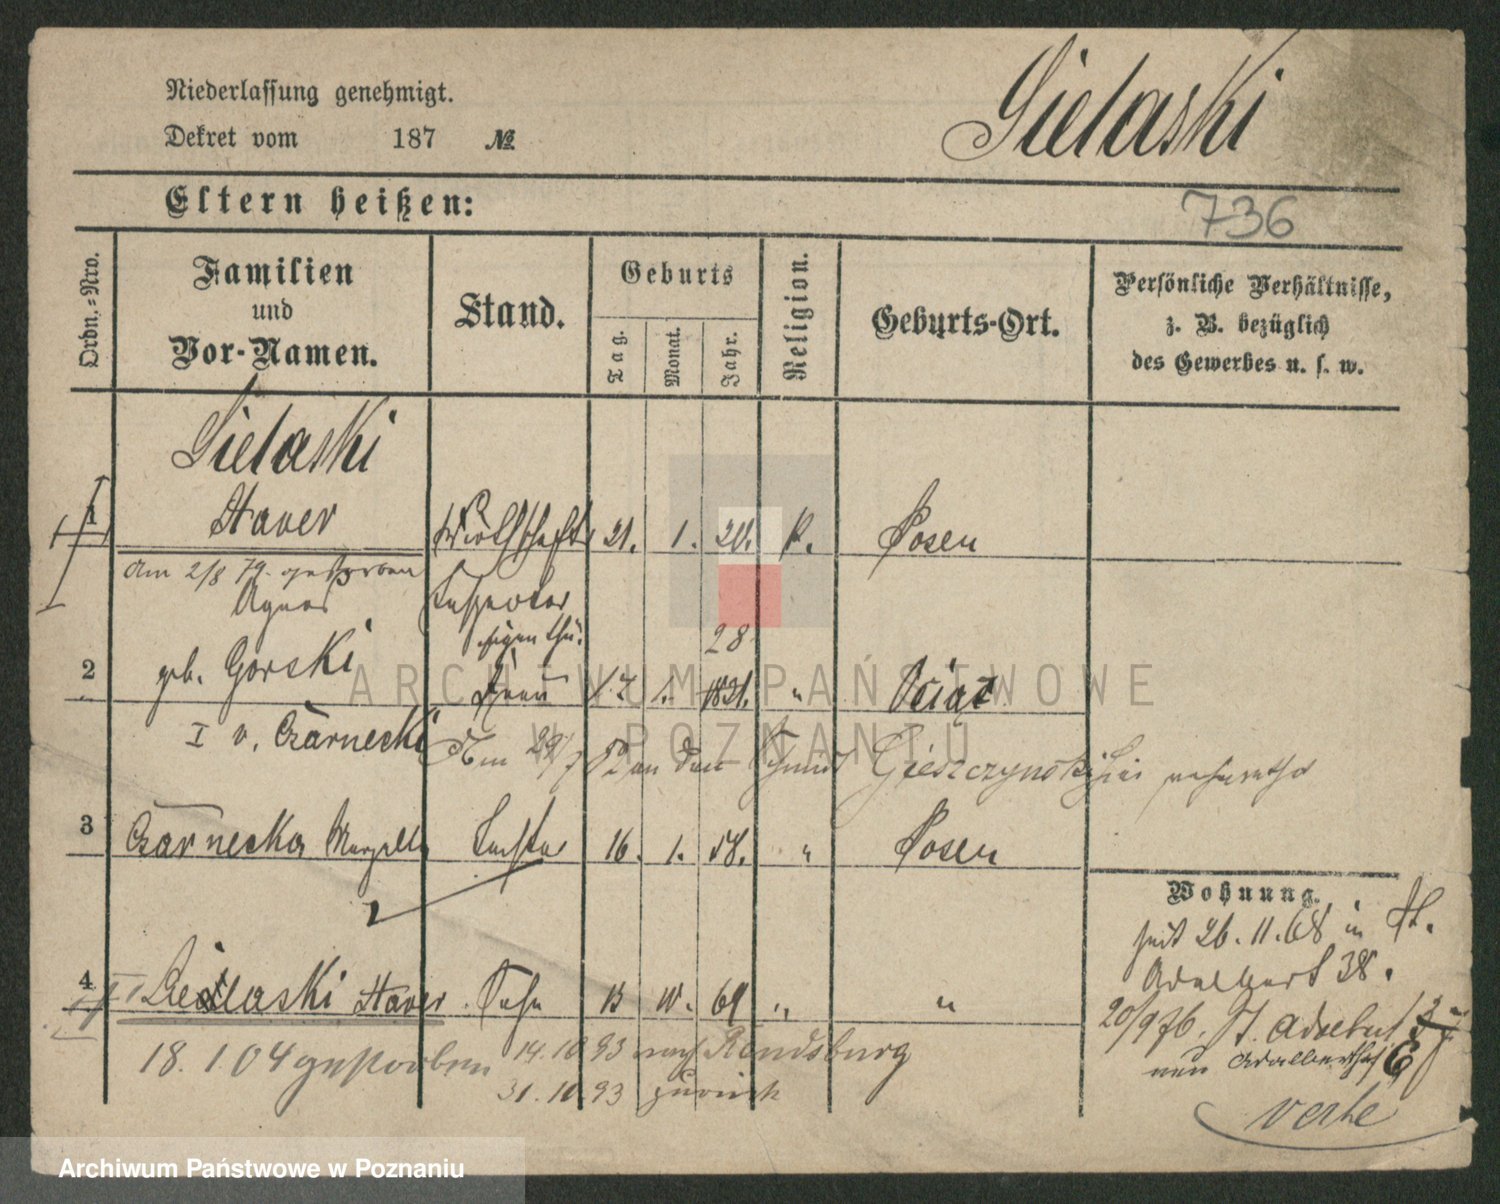 Niederlassung genehmigt.
Dekret vom 187 №
Sielaski
Eltern heißen:
736
Ordn.-Nro.
Familien
und
Vor-Namen.
Stand.
Geburts
Tag.
Monat.
Jahr.
Religion.
Geburts-Ort.
Persönliche Verhältnisse,
z. B. bezüglich
des Gewerbes u. s. w.
Sielaski
1 Xaver Wirthschafts 21. 1. K. Posen
am 2/8 79. gestorben
Agnes Inspector
eigenthü.
28
2 geb. Gorski Frau 17 1. 1831. "
I v. Czarnecki
Am 29/7 an den Schmidt verheirathet
3 Czarnecka Tochter 16. 1. 58. " Posen
Wohnung.
seit 26. 11. 68 in St.
Adalbert 38.
4 Sielaski Xaver Sohn 69 " "
20/9 76. St. Adalbert
18. 1. 04 gestorben 14. 10. 93 nach Rendsburg
nun
31. 10. 93 zurück
verte
ARCHIWUM PAŃSTWOWE
W POZNANIU
Archiwum Państwowe w Poznaniu